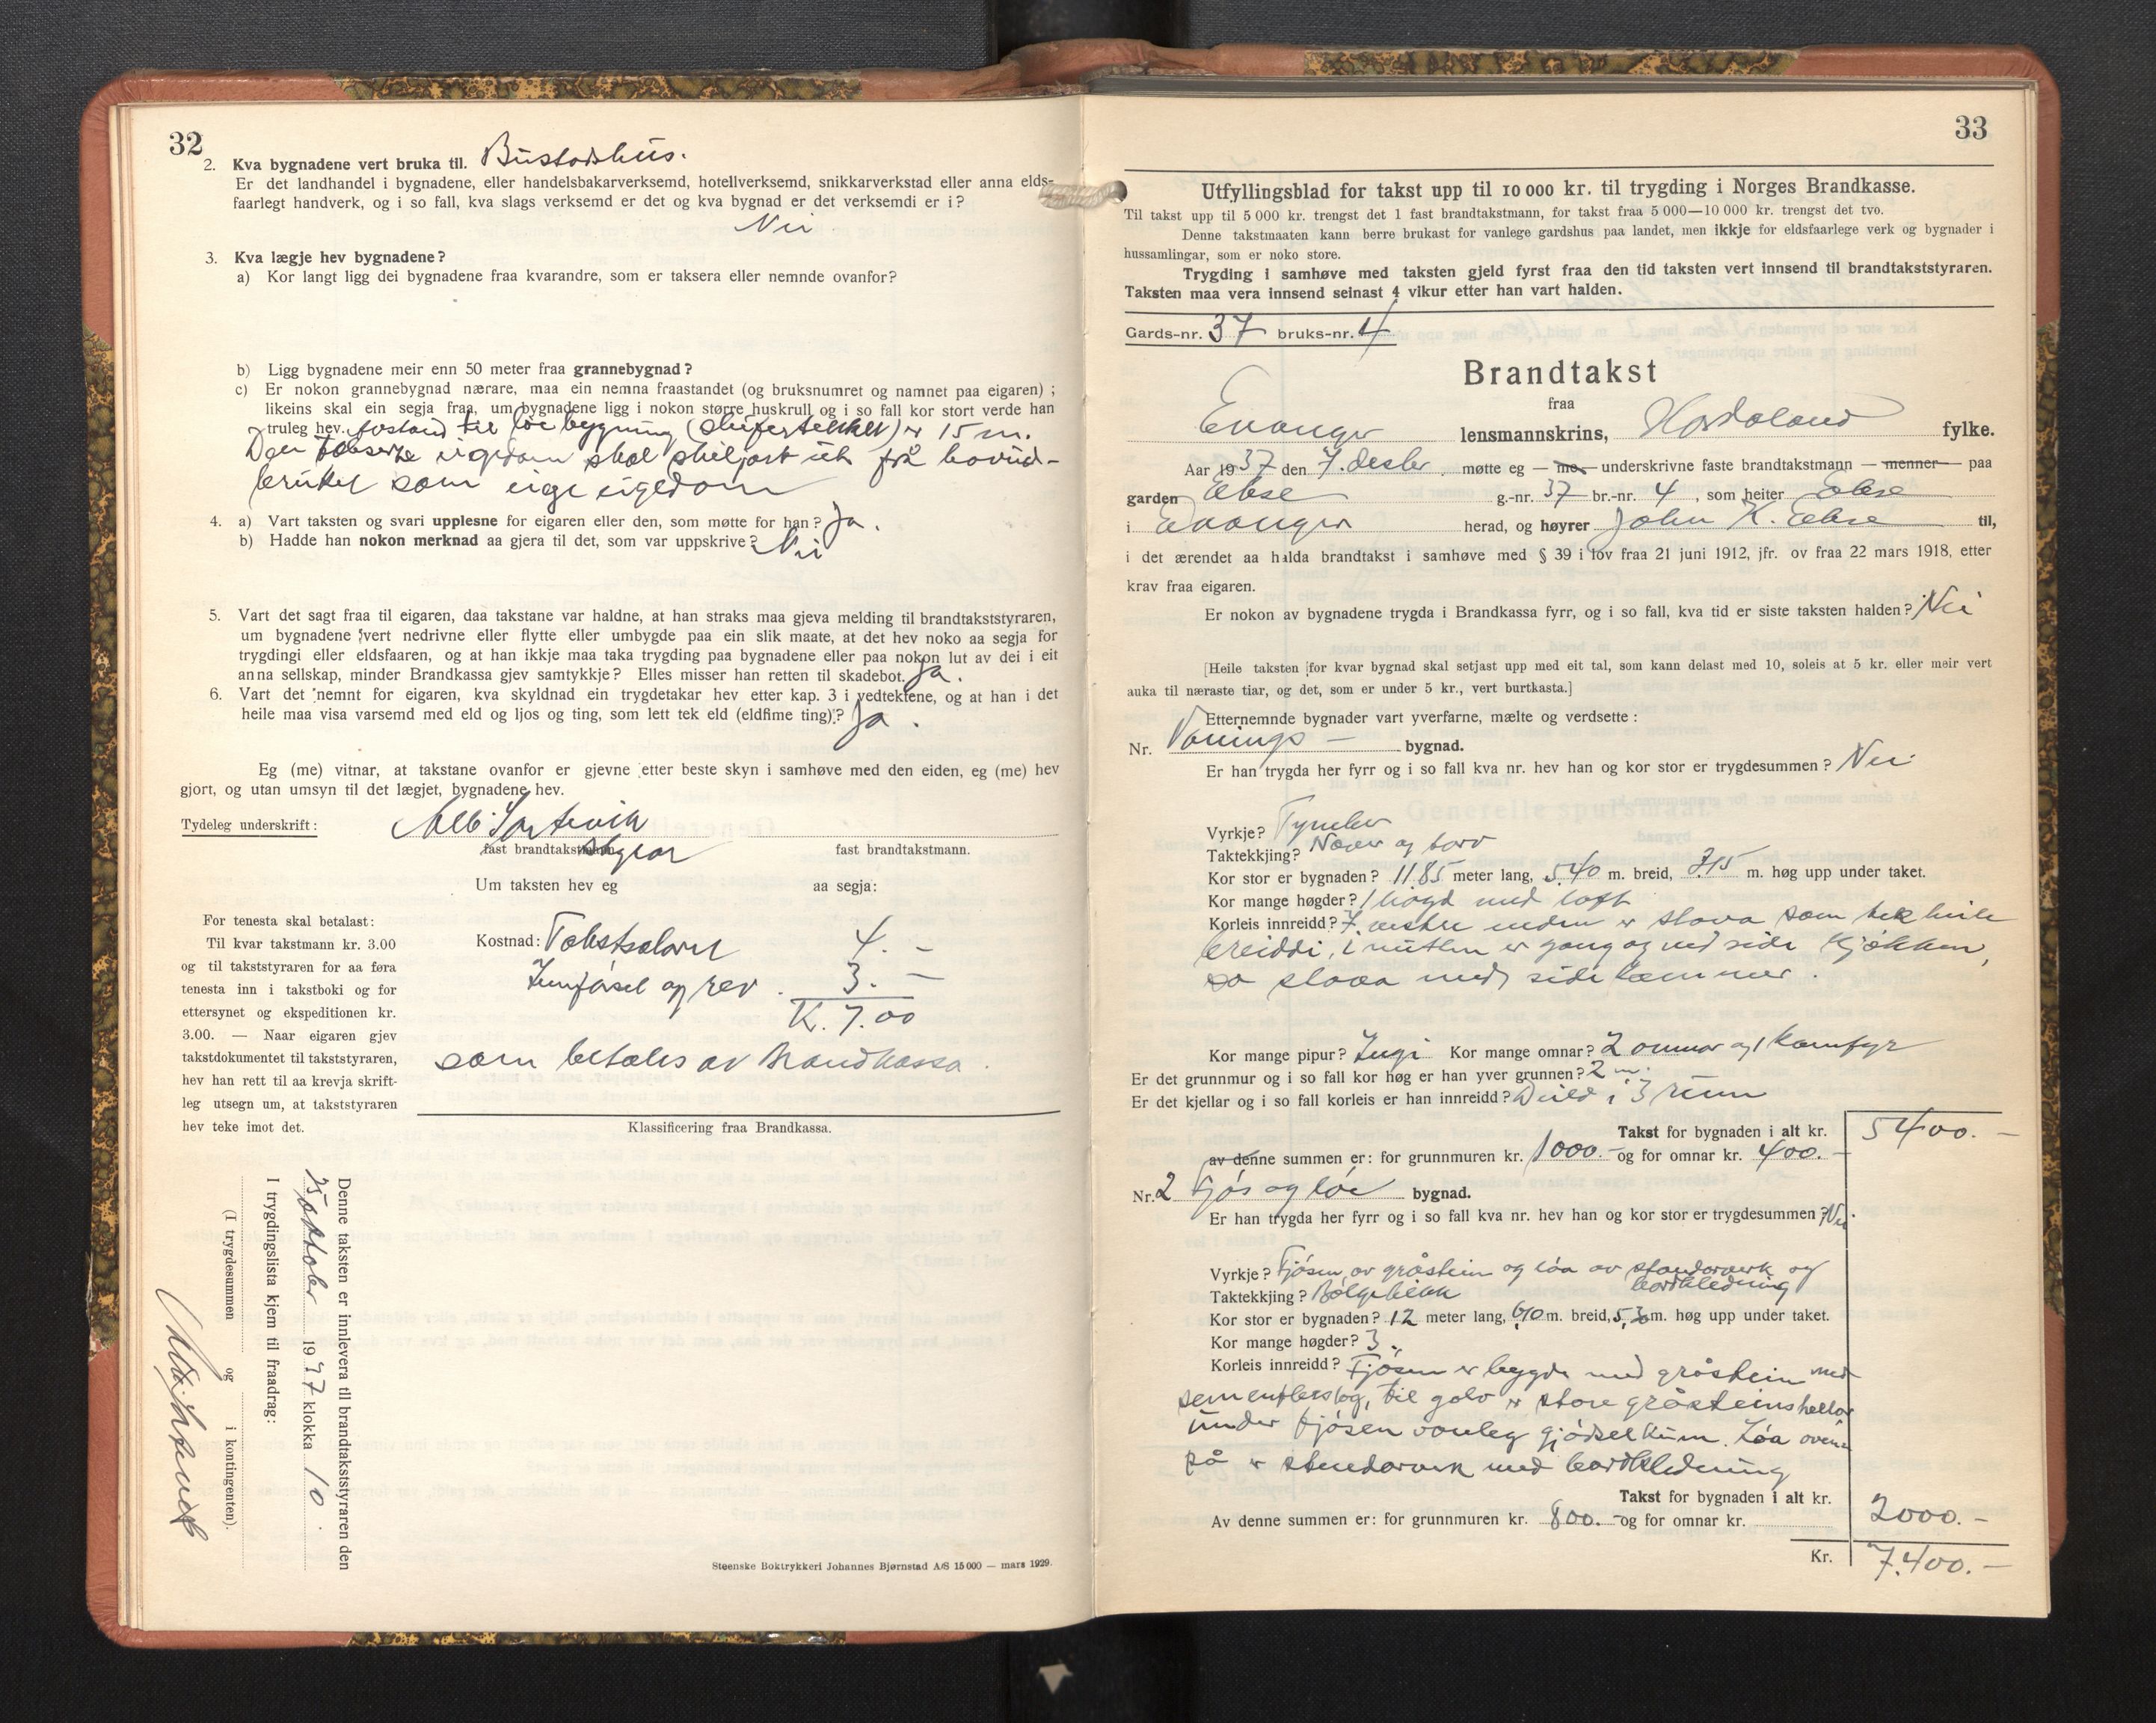 32
2. Kva bygnadene vert bruka til. Bustadshus.
Er det landhandel i bygnadene, eller handelsbakarverksemd, hotellverksemd, snikkarverkstad eller anna elds-
faarlegt handverk, og i so fall, kva slags verksemd er det og kva bygnad er det verksemdi er i?
Nei
3. Kva lægje hev bygnadene?
a) Kor langt ligg dei bygnadene fraa kvarandre, som er taksera eller nemnde ovanfor?
b) Ligg bygnadene meir enn 50 meter fraa grannebygnad?
c) Er nokon grannebygnad nærare, maa ein nemna fraastandet (og bruksnumret og namnet paa eigaren) ;
likeins skal ein segja fraa, um bygnadene ligg i nokon større huskrull og i so fall kor stort verde han
truleg hev. Avstand til løebygning (skifertekket) er 15 m.
Den takserte eigedom skal skiljast ut frå hovud-
bruket som eige eigedom
4. a) Vart taksten og svari upplesne for eigaren eller den, som møtte for han? Ja.
b) Hadde han nokon merknad aa gjera til det, som var uppskrive? Nei
5. Vart det sagt fraa til eigaren, daa takstane var haldne, at han straks maa gjeva melding til brandtakststyraren,
um bygnadene vert nedrivne eller flytte eller umbygde paa ein slik maate, at det hev noko aa segja for
trygdingi eller eldsfaaren, og at han ikkje maa taka trygding paa bygnadene eller paa nokon lut av dei i eit
anna sellskap, minder Brandkassa gjev samtykkje? Elles misser han retten til skadebot. Ja.
6. Vart det nemnt for eigaren, kva skyldnad ein trygdetakar hev etter kap. 3 i vedtektene, og at han i det
heile maa visa varsemd med eld og ljos og ting, som lett tek eld (eldfime ting)? Ja.
Eg (me) vitnar, at takstane ovanfor er gjevne etter beste skyn i samhøve med den eiden, eg (me) hev
gjort, og utan umsyn til det lægjet, bygnadene hev.
Tydeleg underskrift:
fast brandtakstmann styrar fast brandtakstmann.
Um taksten hev eg aa segja:
For tenesta skal betalast:
Til kvar takstmann kr. 3.00
og til takststyraren for aa føra
tenesta inn i takstboki og for
ettersynet og ekspeditionen kr.
3.00. — Naar eigaren gjev
takstdokumentet til takststyraren,
hev han rett til aa krevja skrift-
leg utsegn um, at takststyraren
hev teke imot det.
Kostnad: Takstsalær 4. -
Innførsel og rev. 3. -
K. 7.00
som betales av Brandkassa.
Klassificering fraa Brandkassa.
Denne taksten er innlevera til brandtakststyraren den
25 oktober 1937 klokka 10
I trygdingslista kjem til fraadrag:
(I trygdesummen og i kontingenten).
Steenske Boktrykkeri Johannes Bjørnstad A/S 15 000 — mars 1929.
33
Utfyllingsblad for takst upp til 10 000 kr. til trygding i Norges Brandkasse.
Til takst upp til 5 000 kr. trengst det 1 fast brandtakstmann, for takst fraa 5 000—10 000 kr. trengst det tvo.
Denne takstmaaten kann berre brukast for vanlege gardshus paa landet, men ikkje for eldsfaarlege verk og bygnader i
hussamlingar, som er noko store.
Trygding i samhøve med taksten gjeld fyrst fraa den tid taksten vert innsend til brandtakststyraren.
Taksten maa vera innsend seinast 4 vikur etter han vart halden.
Gards-nr. 37 bruks-nr. 4
Brandtakst
fraa
Evanger lensmannskrins, Hordaland fylke.
Aar 1937 den 7. desbr. møtte eg — me — underskrivne faste brandtakstmann — menner — paa
garden Ebse g.-nr. 37 br.-nr. 4, som heiter Ebse
i Evanger herad, og høyrer John K. Ebse til,
i det ærendet aa halda brandtakst i samhøve med § 39 i lov fraa 21 juni 1912, jfr. ov fraa 22 mars 1918, etter
krav fraa eigaren.
Er nokon av bygnadene trygda i Brandkassa fyrr, og i so fall, kva tid er siste taksten halden? Nei
[Heile taksten for kvar bygnad skal setjast upp med eit tal, som kann delast med 10, soleis at 5 kr. eller meir vert
auka til næraste tiar, og det, som er under 5 kr., vert burtkasta.]
Etternemnde bygnader vart yverfarne, mælte og verdsette :
Nr. Vånings- bygnad.
Er han trygda her fyrr og i so fall kva nr. hev han og kor stor er trygdesummen? Nei
Vyrkje? Tymber
Taktekkjing? Næver og torv
Kor stor er bygnaden? 11.85 meter lang, 5.40 m. breid, 3.15 m. høg upp under taket.
Kor mange høgder? 1 høgd med loft
Korleis innreidd? I vestre enden er stova som tek heile
breiddi, i mitten er gang og ved sida kjøkken,
so stova med sidekammer.
Kor mange pipur? Ingi Kor mange omnar? 2 omnar og 1 komfyr
Er det grunnmur og i so fall kor høg er han yver grunnen? 2 m.
Er det kjellar og i so fall korleis er han innreidd? Deild i 3 rum
Takst for bygnaden i alt kr. 5400. -
av denne summen er: for grunnmuren kr. 1000. - og for omnar kr. 400. -
Nr. 2 Fjøs og løe bygnad.
Er han trygda her fyrr og i so fall kva nr. hev han og kor stor er trygdesummen? Nei.
Vyrkje? Fjøsen av gråstein og løa av standarverk og
bordkledning
Taktekkjing? Bølgeblekk
Kor stor er bygnaden? 12 meter lang, 6,10 m. breid, 5,3 m. høg upp under taket.
Kor mange høgder? 3.
Korleis innreidd? Fjøsen er bygde med gråstein med
sementbeslag, til golv er store gråsteinshellor
under fjøsen vanleg gjødselkum. Løa oven
på er stendarverk med bordkledning
Takst for bygnaden i alt kr. 2000. -
Av denne summen er: for grunnmuren kr. 800. - og for omnar kr.
Kr. 7.400. -